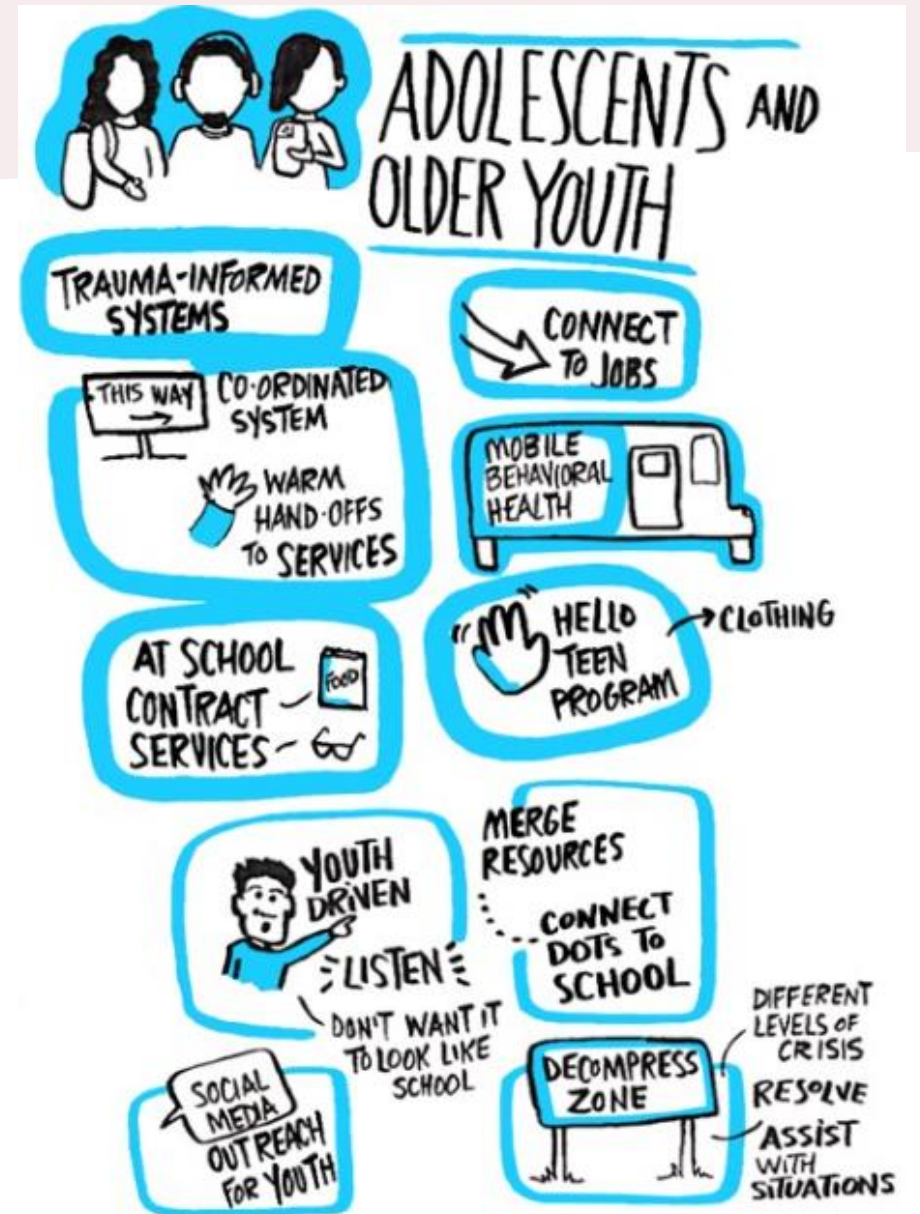 ADOLESCENTS AND
OLDER YOUTH
TRAUMA-INFORMED
SYSTEMS
THIS WAY
CO-ORDINATED
SYSTEM
WARM
HAND-OFFS
TO SERVICES
AT SCHOOL
CONTRACT
SERVICES
FOOD
CONNECT
TO JOBS
MOBILE
BEHAVIORAL
HEALTH
HELLO
TEEN
PROGRAM
CLOTHING
YOUTH
DRIVEN
LISTEN
DON'T WANT IT
TO LOOK LIKE
SCHOOL
MERGE
RESOURCES
CONNECT
DOTS TO
SCHOOL
SOCIAL
MEDIA
OUTREACH
FOR YOUTH
DECOMPRESS
ZONE
DIFFERENT
LEVELS OF
CRISIS
RESOLVE
ASSIST
WITH
SITUATIONS